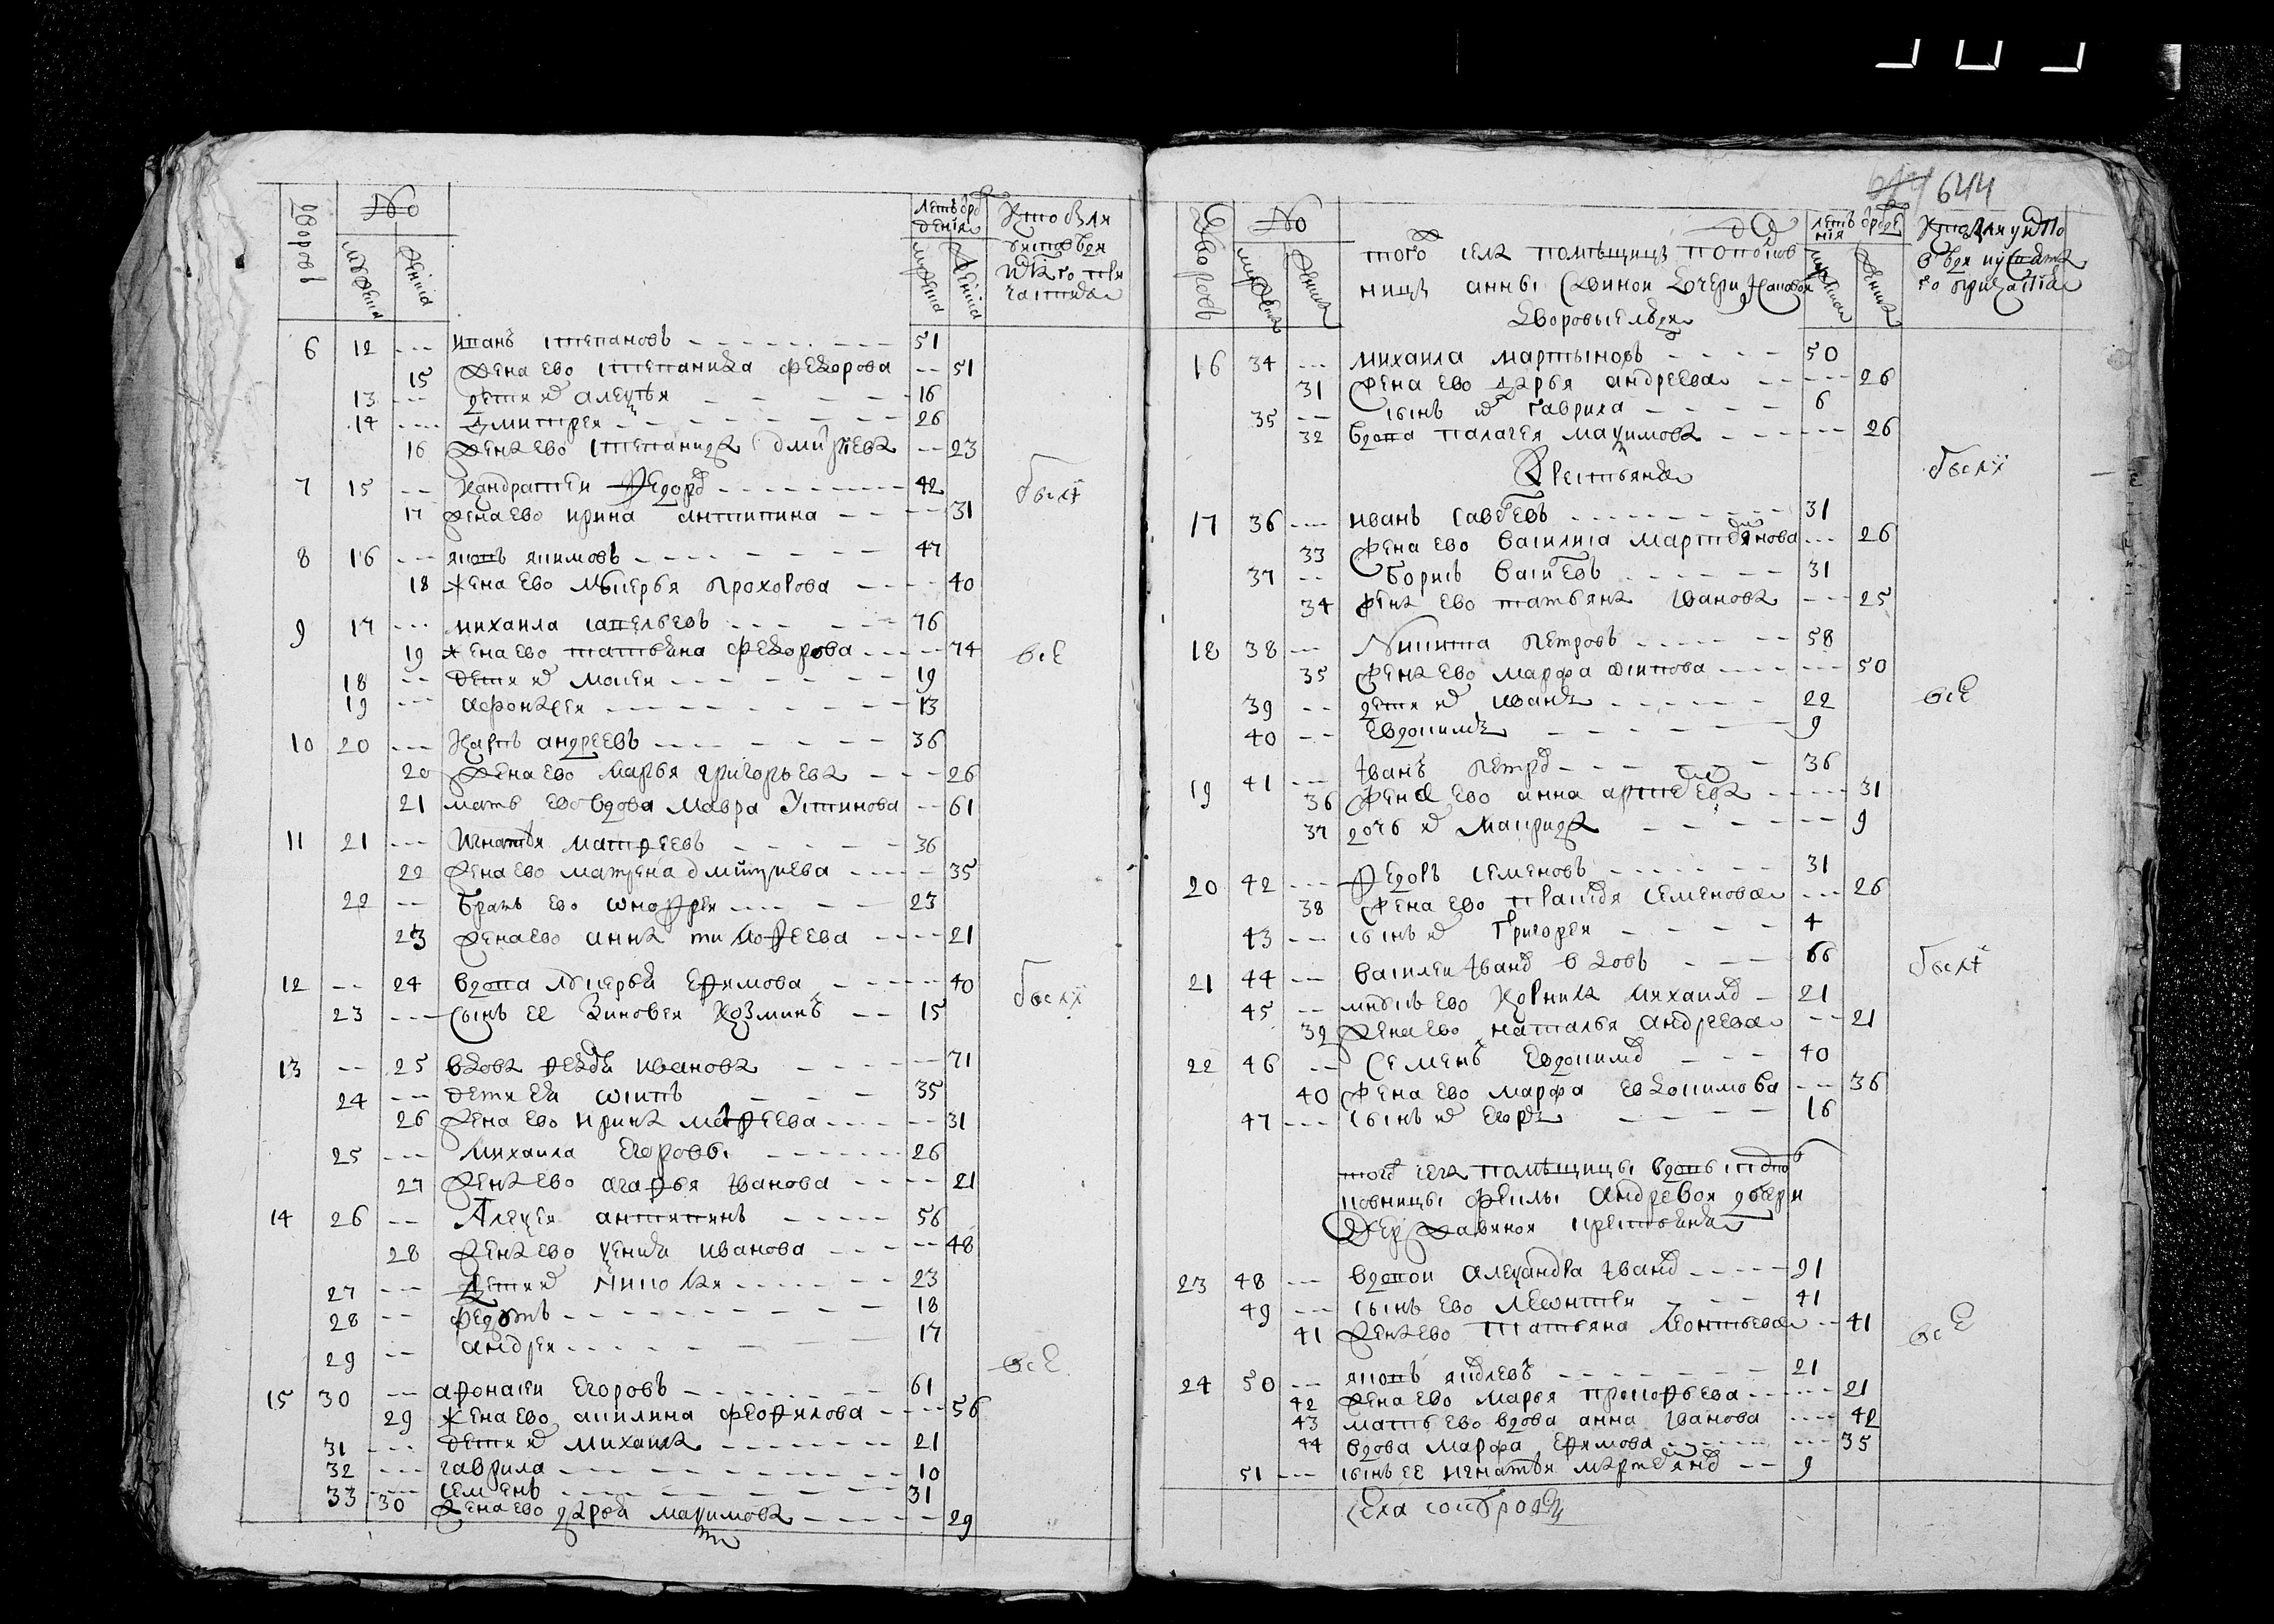 Дворовъ
№
мужеска
женска
летъ от рождения
мужеска
женска
6 12 --- Иванъ Степановъ 51
15 Жена ево Степанида Федорова 51
13 --- дети их Алексѣи 16
14 --- Дмитреи 26
16 Жена ево Степанида Дмитриева 23
7 15 -- Кандратеи Федоров 42
17 жена ево Ирина Антипина 31
былї
8 16 --- Яковъ Якимовъ 47
18 жена ево Лукерья Прохорова 40
9 17 --- Михаила Савельевъ 76
19 жена ево Татьяна Федорова 74
всѣ
18 -- дети их Мосеи 19
19 --- Афонасеи 13
10 20 --- Карпъ Андреевъ 36
20 Жена ево Марья Григорьева 26
21 мать ево вдова Мавра Устинова 61
11 21 --- Игнатеи Матфеевъ 36
22 Жена ево Матрена Дмитриева 35
22 -- Братъ ево Онофреи 23
23 жена ево Анна Тимофеева 21
12 -- 24 вдова Лукерья Ефимова 40
былї
23 --- сынъ ее Зиновеи Козминъ 15
13 -- 25 вдова Федосья Иванова 71
24 -- дети еи Осипъ 35
26 Жена ево Ирина Матфеева 31
25 --- Михаила Егоровъ 26
27 Жена ево Агафья Иванова 21
14 26 -- Алексеи Антипинъ 56
28 Жена ево Ксения Иванова 48
27 -- Дети их Никола 23
28 -- Федотъ 18
29 -- Андреи 17
всѣ
15 30 -- Афонасеи Егоровъ 61
29 жена ево Акилина Феофилова 56
31 --- дети их Михаила 21
32 --- Гаврила 10
33 --- Семенъ 31
30 Жена ево Дарья Максимова 29
644
Дворовъ
№
мужеска
женска
того села помѣщицы полков
ницы Анны Саввинои дочери
Дворовые люди
летъ от рождения
мужеска
женска
16 34 --- Михаила Мартыновъ 50
31 жена ево Дарья Андреева 26
35 -- сынъ их Гаврила 6
32 вдова Палагея Максимова 26
Крестьяня
былї
17 36 --- Иванъ Савелевъ 31
33 жена ево Василиса Мартемьянова 26
37 -- Борисъ Василевъ 31
34 жена ево Татьяна Иванова 25
18 38 -- Никита Петровъ 58
35 жена ево Марфа Осипова 50
39 -- дети их Иванъ 22
всѣ
40 -- Евдокимъ 9
19 41 --- Иванъ Петров 36
36 жена ево Анна Артемева 31
37 дочь их Маврида 9
20 42 --- Федоръ Семеновъ 31
38 жена ево Прасковья Семенова 26
43 --- сынъ их Григореи 4
21 44 -- Василеи Иванов вдовъ 66
былї
45 -- внукъ ево Корнила Михаилов 21
39 Жена ево Наталья Андреева 21
22 46 -- Семенъ Евдокимов 40
40 жена ево Марфа Евдокимова 36
47 --- сынъ их Егоръ 16
того села помѣщицы вдовы подпол
ковницы Феклы Андревои дочери
Державинои крестьяня
23 48 --- вдовои Александра Иванов 91
49 --- сынъ ево Леонтеи 41
41 Жена ево Татьяна Леонтьева 41
всѣ
24 50 --- Яковъ Яковлевъ 21
42 Жена ево Марья Прокофьева 21
43 мать ево вдова Анна Иванова 42
44 вдова Марфа Ефимова 35
51 --- сынъ ее Игнатеи Мартемьянов 9